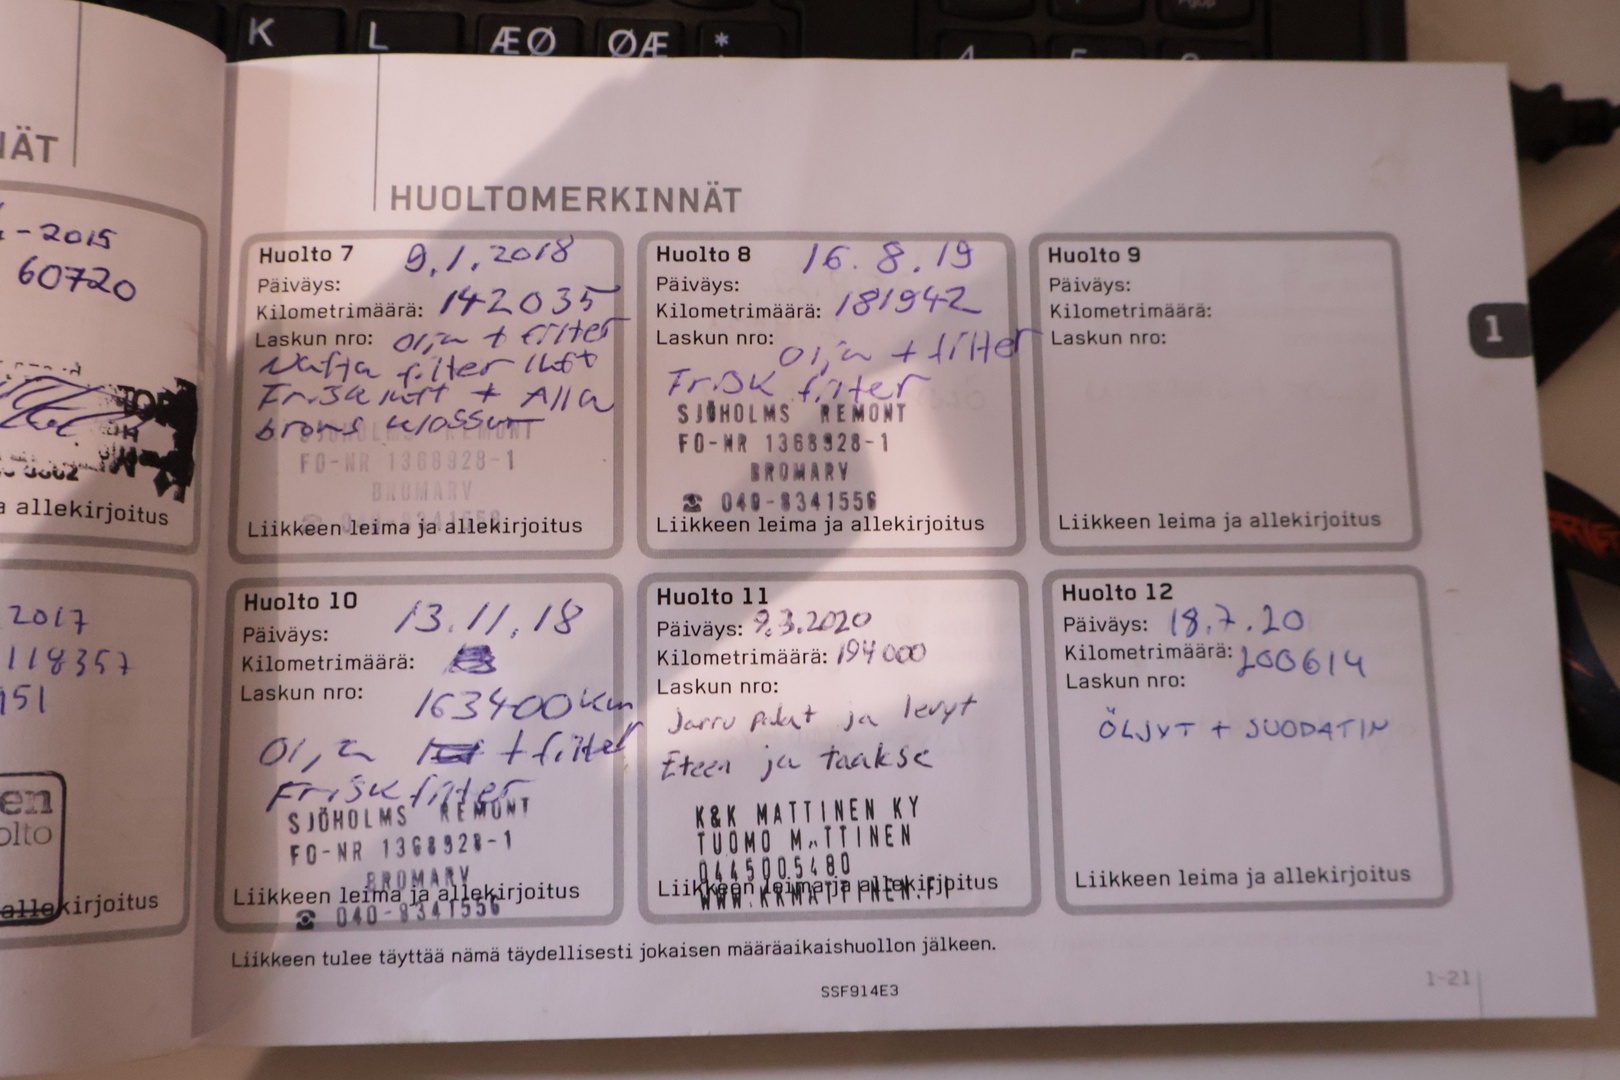 K L ÆØ ØÆ *
4 5
NÄT
-2015
60720
a allekirjoitus
2017
118357
951
en
olto
allekirjoitus
HUOLTOMERKINNÄT
1
Huolto 7 9.1.2018
Päiväys:
Kilometrimäärä: 142035
Laskun nro: olja + filter
Nafta filter luft
Frisk luft + Alla
broms klossar
SJÖHOLMS REMONT
FO-NR 1368928-1
BROMARV
Liikkeen leima ja allekirjoitus
Huolto 8 16.8.19
Päiväys:
Kilometrimäärä: 181942
Laskun nro:
olja + filter
Frisk filter
SJÖHOLMS REMONT
FO-NR 1368928-1
BROMARV
☎ 040-8341556
Liikkeen leima ja allekirjoitus
Huolto 9
Päiväys:
Kilometrimäärä:
Laskun nro:
Liikkeen leima ja allekirjoitus
Huolto 10 13.11.18
Päiväys:
Kilometrimäärä:
Laskun nro:
163400km
Olja + filter
Frisk filter
SJÖHOLMS REMONT
FO-NR 1368928-1
BROMARV
Liikkeen leima ja allekirjoitus
☎ 040-8341556
Huolto 11
Päiväys: 9.3.2020
Kilometrimäärä: 194000
Laskun nro:
Jarru palat ja levyt
Eteen ja taakse
K&K MATTINEN KY
TUOMO MATTINEN
0445005480
Liikkeen leima ja allekirjoitus
WWW.KKMATTINEN.FI
Huolto 12
Päiväys: 18.7.20
Kilometrimäärä: 200614
Laskun nro:
ÖLJYT + SUODATIN
Liikkeen leima ja allekirjoitus
Liikkeen tulee täyttää nämä täydellisesti jokaisen määräaikaishuollon jälkeen.
SSF914E3
1-21